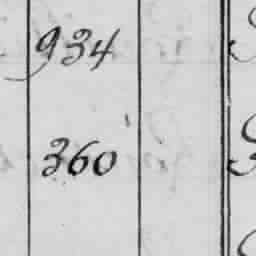 934
360